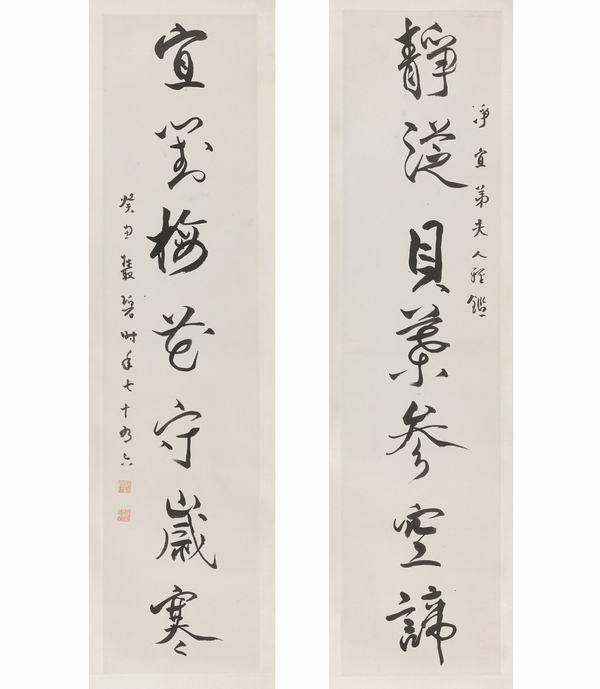 靜從貝葉參空諦
靜宜弟夫人雅鑑
宜對梅花守歲寒
癸丑叢碧時年七十有六